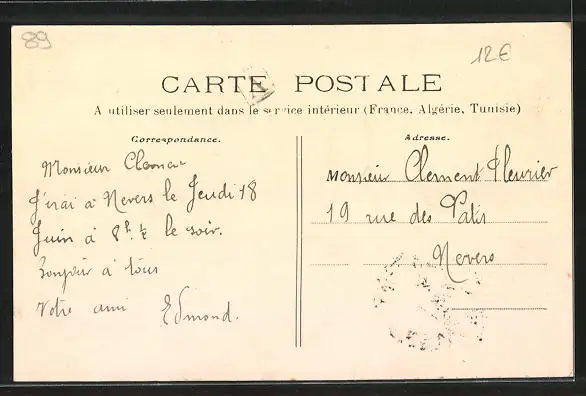 89
12€
CARTE POSTALE
A utiliser seulement dans le service intérieur (France, Algérie, Tunisie)
Correspondance.
Monsieur
J'irai à Nevers le Jeudi 18
Juin à 8h. ½ le soir.
Bonjour à tous
Votre ami Edmond.
Adresse.
Monsieur Clement Fleurier
19 rue des Patis
Nevers